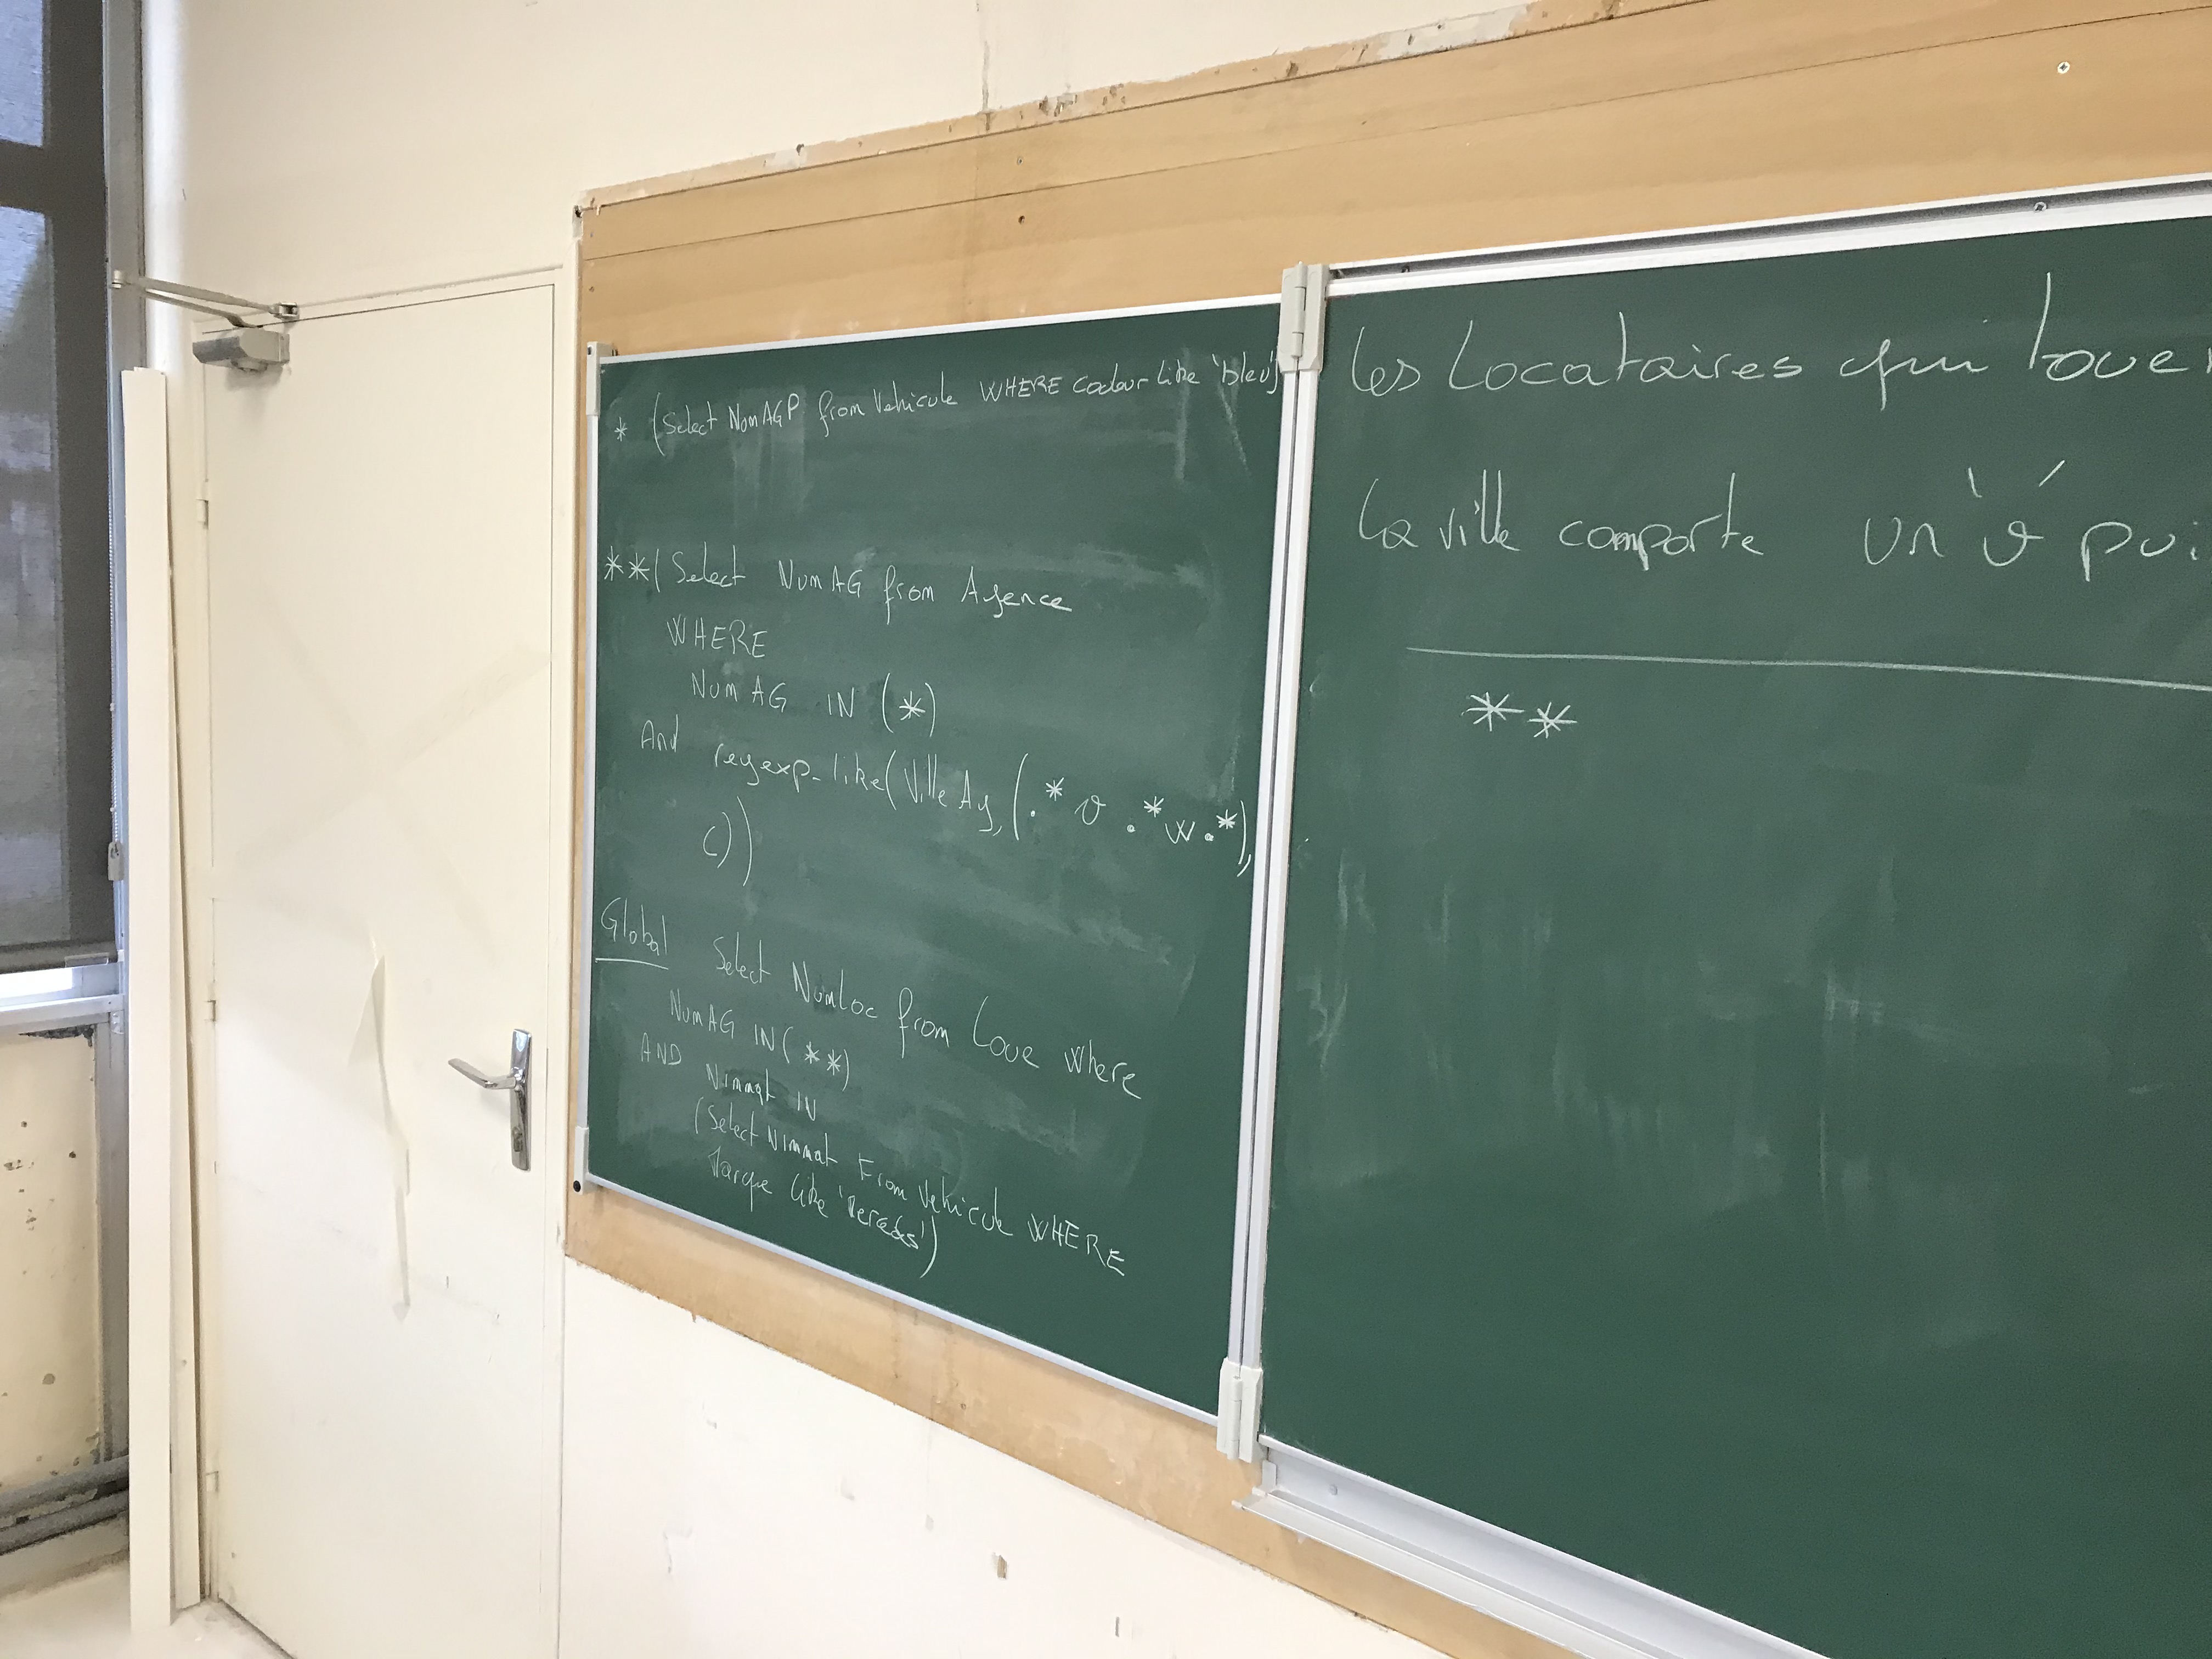 * (Select NumAGP from Vehicule WHERE Couleur Like 'bleu')
** (Select NumAG from Agence
WHERE
NumAG IN (*)
And regexp-like(VilleAg, (.* v .* w .*),
c))
Global Select NumLoc from Loue where
NumAG IN (**)
AND Nimmat IN
(Select Nimmat From Vehicule WHERE
Marque Like 'Mercedes')
Les Locataires qui loue
La ville comporte un 'v' pui
**